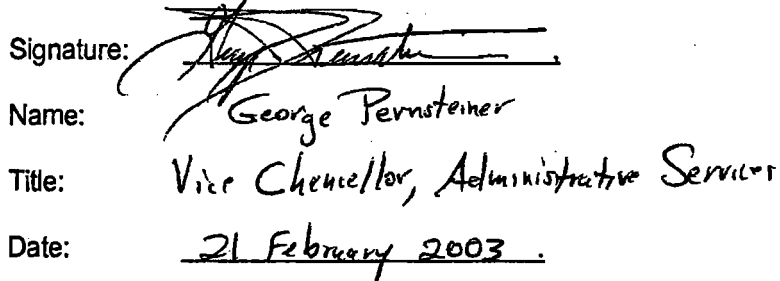 Signature:
Name: George Pernsteiner
Title: Vice Chancellor, Administrative Services
Date: 21 February 2003.